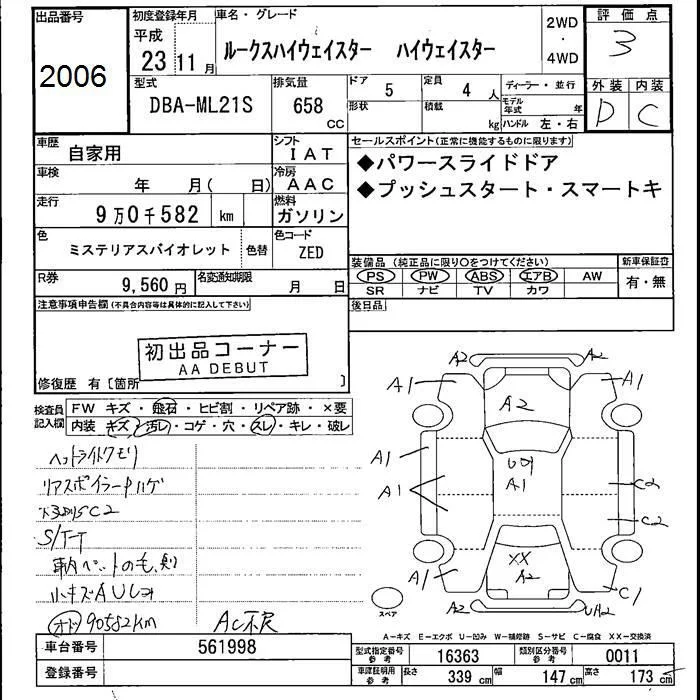 出品番号
2006
初度登録年月
平成
23 11 月
車名・グレード
ルークスハイウェイスター ハイウェイスター
2WD
・
4WD
評価点
3
型式
DBA-ML21S
排気量
658
CC
ドア
5
定員
4 人
形状
積載
kg
ディーラー・並行
モデル年式
年
ハンドル 左・右
外装 内装
D C
車歴
自家用
シフト
IAT
車検
年 月( 日)
冷房
AAC
走行
9万0千582 km
燃料
ガソリン
色
ミステリアスバイオレット
色替
色コード
ZED
R券
9,560 円
名変通知期限
月 日
セールスポイント(正常に機能するものに限ります)
◆パワースライドドア
◆プッシュスタート・スマートキ
装備品 (純正品に限り○をつけてください)
PS PW ABS エアB AW
SR ナビ TV カワ
新車保証書
有・無
後日品
注意事項申告欄(不具合内容等は具体的に記入して下さい)
初出品コーナー
AA DEBUT
修復歴 有〔箇所 〕
検査員
記入欄
FW キズ・飛石・ヒビ割・リペア跡・×要
内装 キズ・汚レ・コゲ・穴・スレ・キレ・破レ
ヘッドライトクモリ
リアスポイラーチハゲ
C2
S/T-T
車内ペットのも
小キズAU
オド 90582km
AC不良
A2 A2
A1 A1
A2
A1
A1
A1
C2
C2
XX
A2
A1
C1
A2
UA2
スペア
A-キズ E-エクボ U-凹み W-補修跡 S-サビ C-腐食 XX-交換済
車台番号
561998
登録番号
型式指定番号
参考
16363
類別区分番号
参考
0011
車庫証明用
参考
長さ
339 cm
幅
147 cm
高さ
173 cm